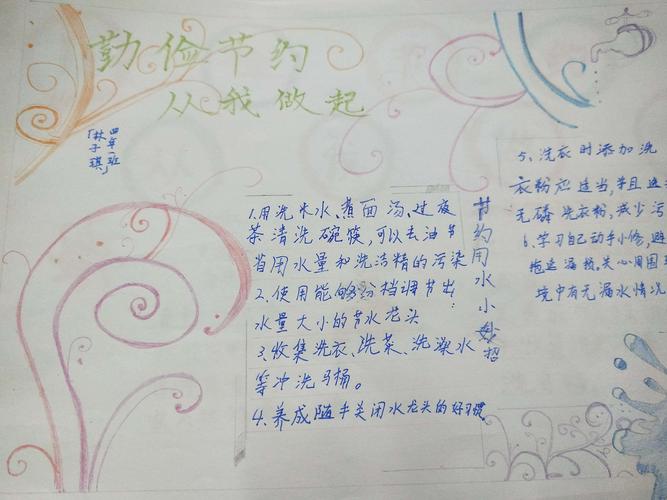 勤俭节约
从我做起
四年一班
「林子琪」
节约用水小妙招
1.用洗米水、煮面汤、过夜
茶清洗碗筷,可以去油节
省用水量和洗洁精的污染
2.使用能够分档调节出
水量大小的节水龙头
3.收集洗衣、洗菜、洗澡水
等冲洗马桶。
4.养成随手关闭水龙头的好习惯
5、洗衣时添加洗
衣粉应适当,并且选
无磷洗衣粉,减少污
6.学习自己动手小修,避
拖延漏损,关心周围
境中有无漏水情况